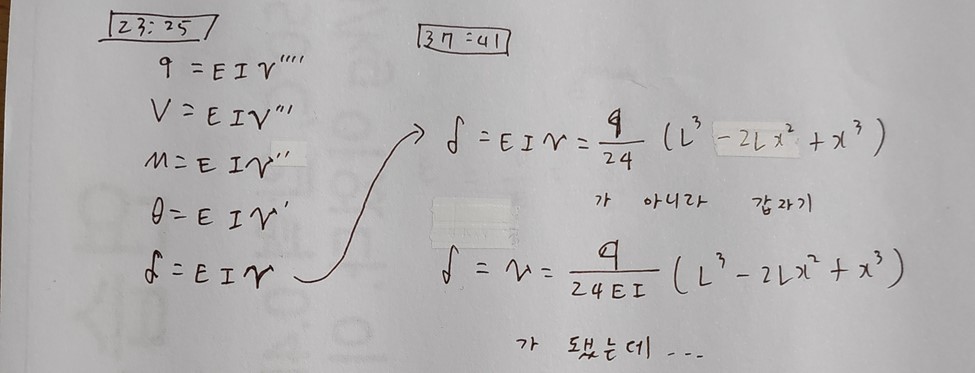 23:25
q = EIν''''
V = EIν'''
M = EIν''
θ = EIν'
δ = EIν
37:41
δ = EIν = q/24 (L³ - 2Lx² + x³)
가 아니라 갑자기
δ = ν = q/24EI (L³ - 2Lx² + x³)
가 됐는데 ...